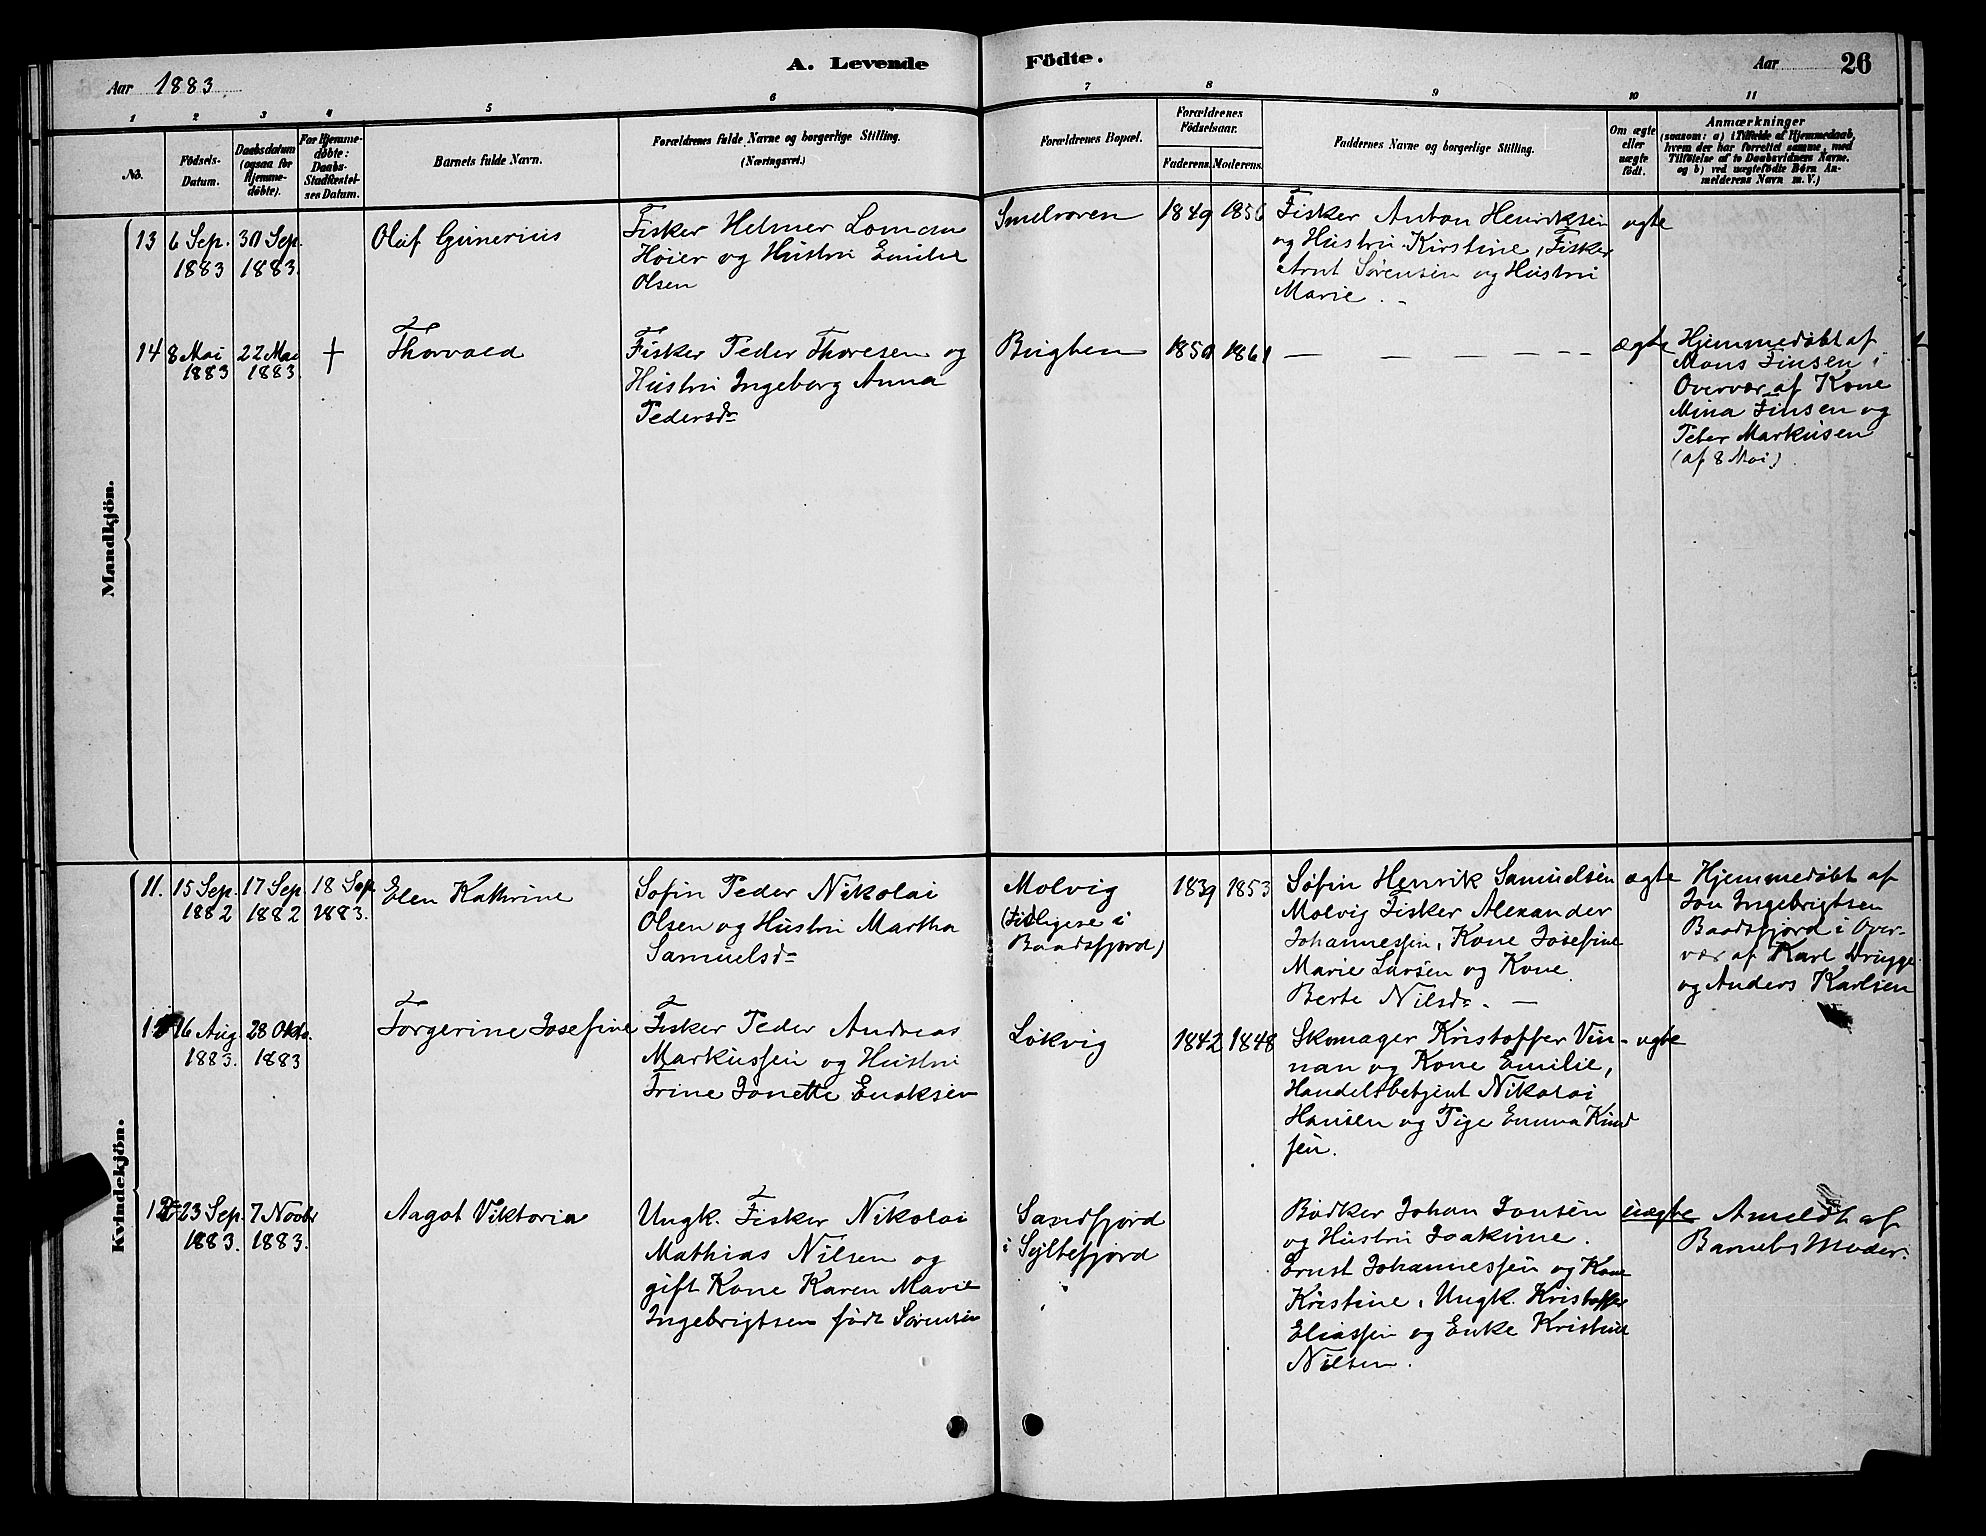 Aar 1883.
A. Levende Fødte.
Aar 26
1 2 3 4 5 6 7 8 9 10 11
No.
Fødsels-Datum.
Daabsdatum (ogsaa for Hjemme-døbte).
For Hjemme-døbte: Daabs-Stadfæstel-ses Datum.
Barnets fulde Navn.
Forældrenes fulde Navne og borgerlige Stilling.
(Næringsvei.)
Forældrenes Bopæl.
Forældrenes Fødselsaar.
Faderens. Moderens.
Faddernes Navne og borgerlige Stilling.
Om ægte eller uægte født.
Anmærkninger
(saasom: a) i Tilfælde af Hjemmedaab,
hvem der har forrettet samme, med
Tilføielse af to Daabsvidners Navne.
og b) ved uægtefødte Børn An-
melderens Navn m. V.)
Mandkjön.
13 6 Sep. 1883 30 Sep. 1883.
Oluf Gunerius
Fisker Helmer
Høier og Hustru Emilie
Olsen
Smelroren
1849 1856
Fisker Anton Henriksen
og Hustru Kirstine, Fisker
Arnt Sørensen og Hustru
Marie. -
ægte
14 8 Mai 1883 22 Mai 1883. +
Thorvald
Fisker Peder Thoresen og
Hustru Ingeborg Anna
Pedersd.
1850 1861
— — — — - -
ægte
Hjemmedøbt af
Mons Finsen i
Overvær af Kone
Mina Finsen og
Peter Markusen
(af 8 Mai).
Kvindekjön.
11. 15 Sep. 1882 17 Sep 1882 18 Sep. 1883.
Elen Kathrine
Sofin Peder Nikolai
Olsen og Hustru Martha
Samuelsd.
Molvig
(Tidligere i
Baadsfjord)
1839 1853
Søfin Henrik Samuelsen
Molvig Fisker Alexander
Johannessen, Kone Josefine
Marie Larsen og Kone
Berte Nilsd. —
ægte
Hjemmedøbt af
Jon Ingebrigtsen
Baadsfjord i Over-
vær af Karl
og Anders Karlsen
12 16 Aug. 1883. 28 Oktb. 1883
Torgerine Josefine
Fisker Peder Andreas
Markussen og Hustru
Trine Janette Enoksen
Løkvig
1842 1848
Skomager Kristoffer Vin-
nan og Kone Emilie,
Handelsbetjent Nikolai
Hansen og Pige Emma Knud
sen.
ægte
23 Sep. 1883. 7 Novbr 1883.
Aagot Viktoria
Ungk. Fisker Nikolai
Mathias Nilsen og
gift Kone Karen Marie
Ingebrigtsen født Sørensen
Sandfjord
i Syltefjord
Bødker Johan Jonsen
og Hustru Joakime.
Ernst Johannessen og Kone
Kristine, Ungk. Kristoffer
Eliassen og Enke Kristine
Nilsen.
uægte
Anmeldt af
Barnets Moder.